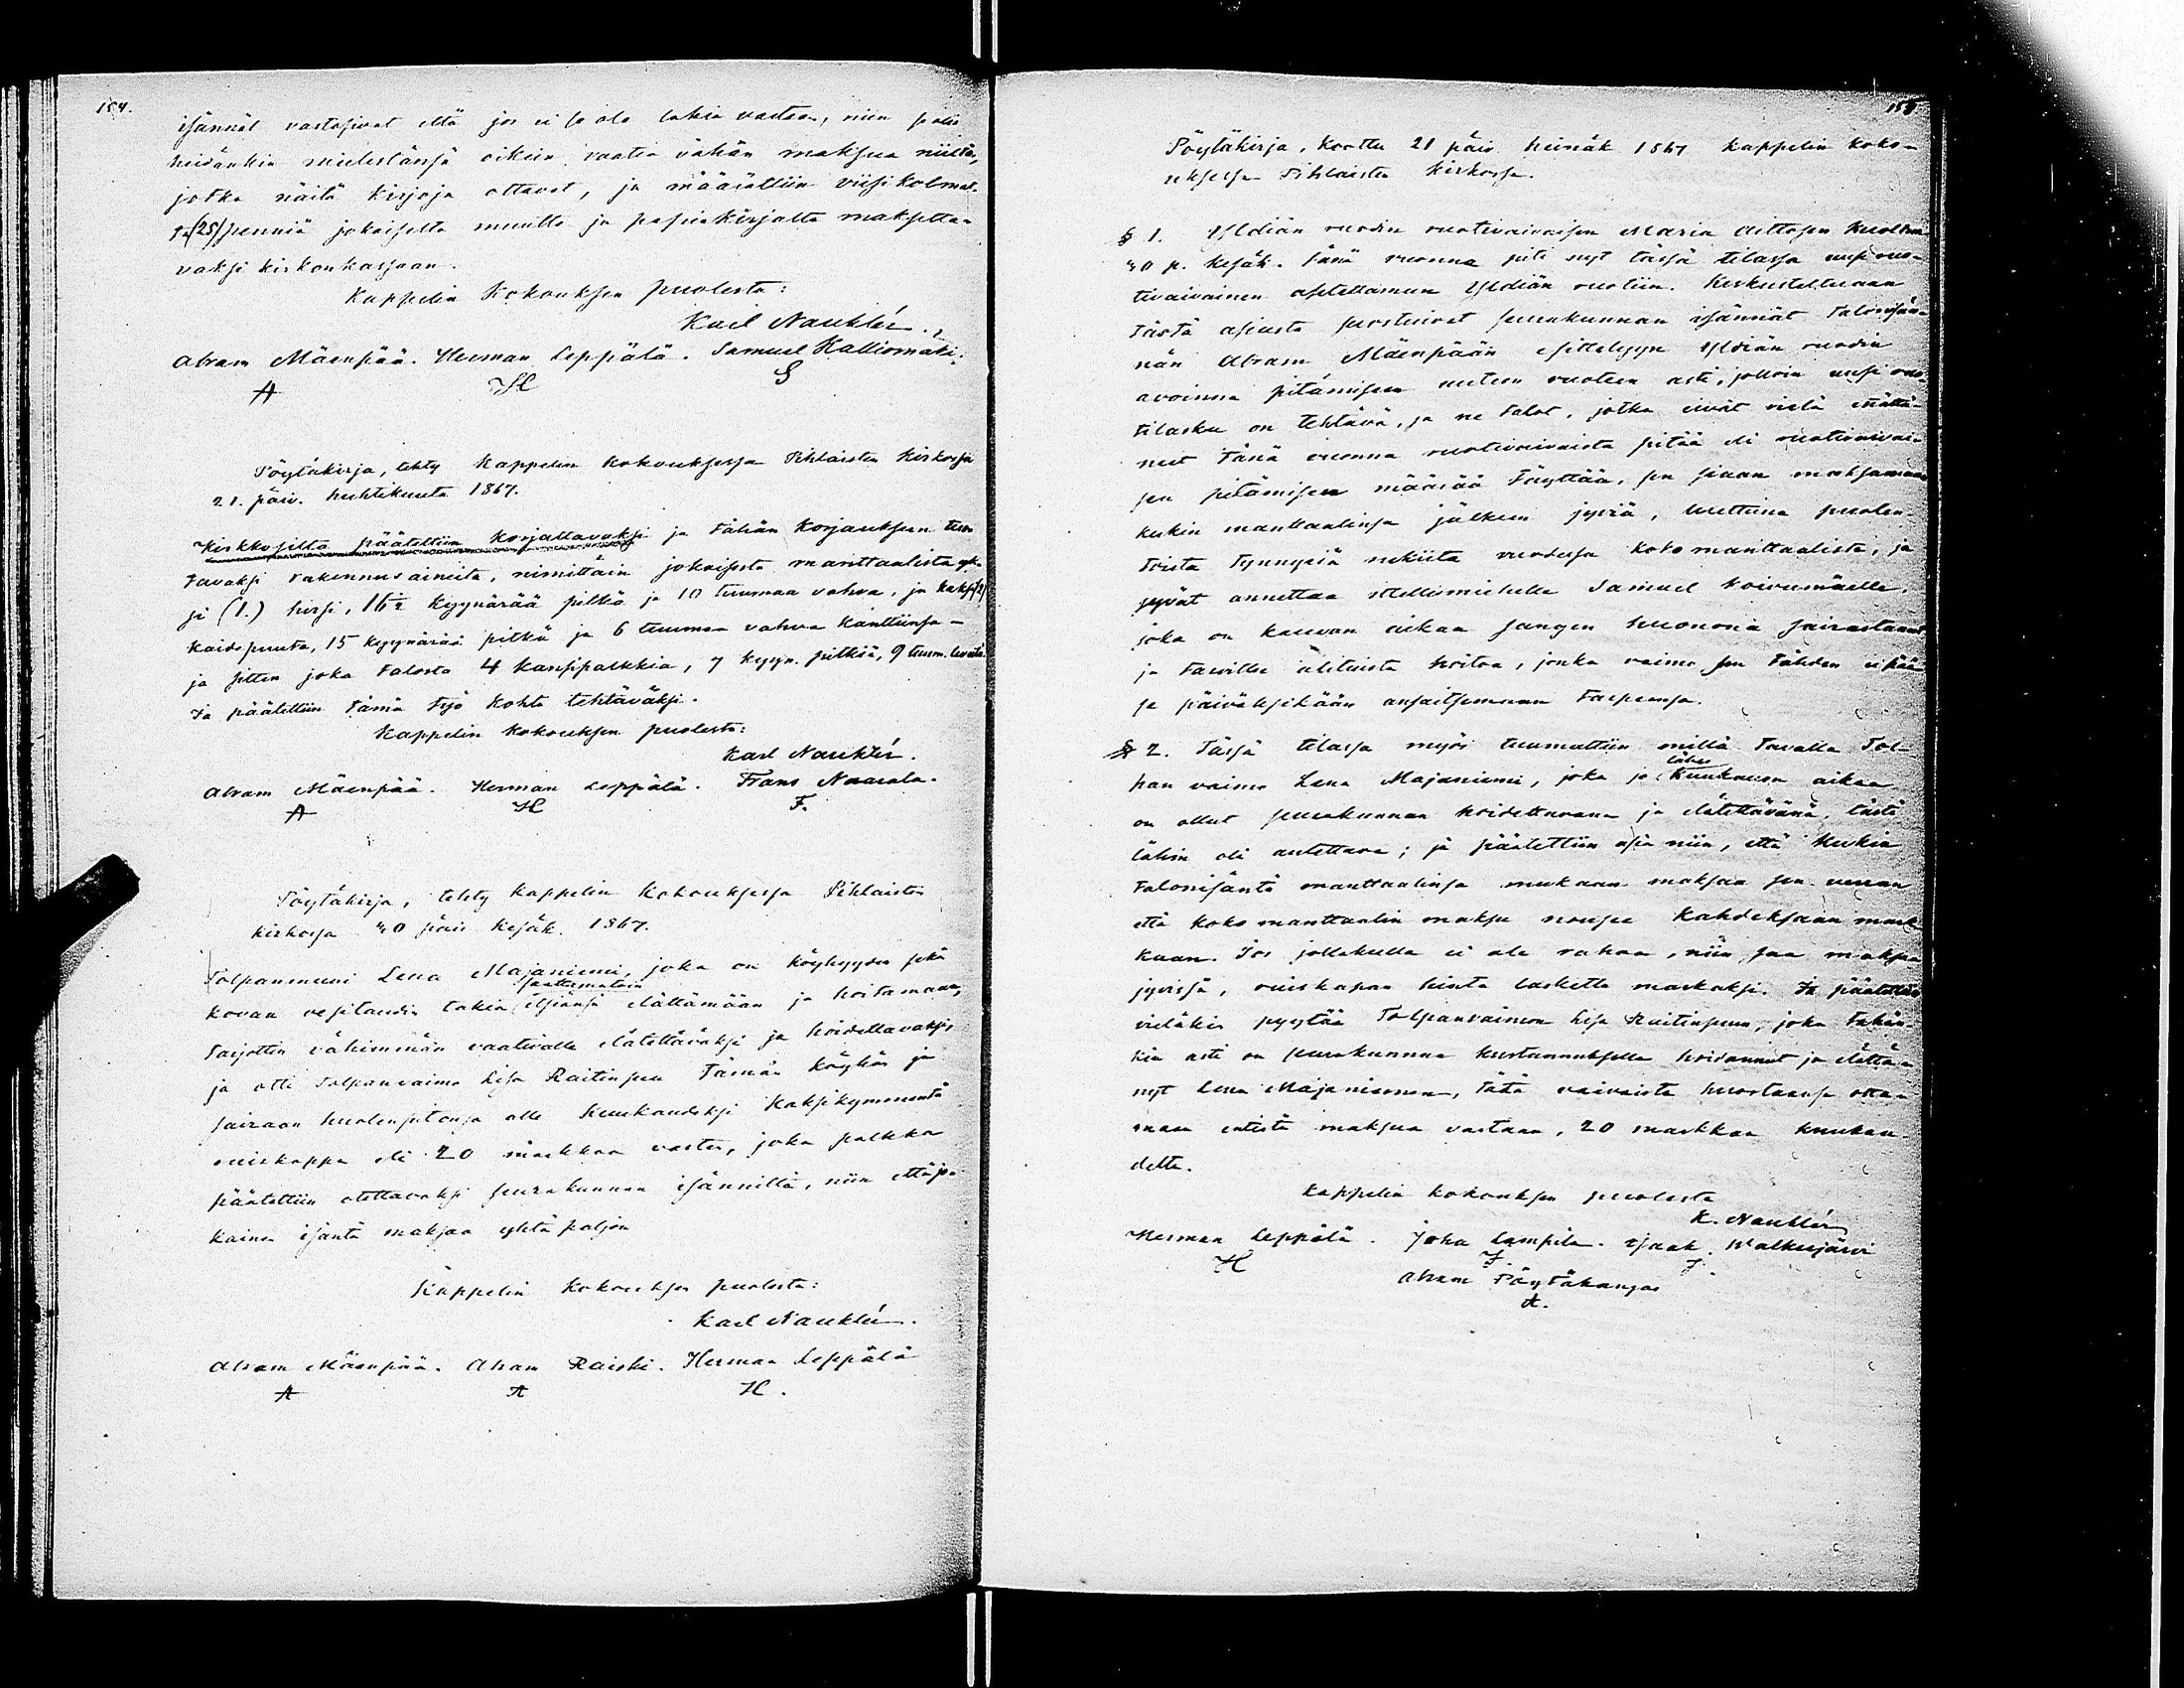 154.
isännät vastasivat että jos ei se ole lakia vastaan, niin se olis
heidänkin mielestänsä oikein vaatia vähän maksua niiltä,
jotka näitä kirjoja ottavat, ja määrättiin viisikolmat-
ta (25) penniä jokaiselta muulta ja passiakirjalta maksetta-
vaksi kirkonkassaan.
Kappelin Kokouksen puolesta:
Karl Nauklér.
Abram Mäenpää. Herman Leppälä. Samuel Kalliomäki.
A H S
Pöytäkirja, tehty Kappelin kokouksessa Pihlaisten kirkossa
21. päiv. huhtikuuta 1867.
Kirkkosilta päätettiin korjattavaksi ja tähän korjaukseen tuo-
tavaksi rakennusaineita, nimittäin jokaisesta manttaalista yk-
si (1.) hirsi, 16½ kyynärää pitkä ja 10 tuumaa vahva, ja kaksi (2)
kaidepuuta, 15 kyynärää pitkä ja 6 tuumaa vahva kanttiinsa -
ja sitten joka talosta 4 kansipalkkia, 7 kyyn. pitkiä, 9 tuum. leveitä.
Ja päätettiin tämä työ kohta tehtäväksi.
Kappelin kokouksen puolesta:
Karl Nauklér.
Abram Mäenpää. Herman Leppälä. Frans Naarala.
A H F.
Pöytäkirja, tehty kappelin kokouksessa Pihlaisten
kirkossa 30 päiv kesäk. 1867.
Tolpanmuori Lena Majaniemi, joka on köyhyyden sekä
saattamatoin
kovan vesitaudin takia itsiänsä elättämään ja hoitamaan,
tarjottiin vähimmän vaativalle elätettäväksi ja hoidettavaksi
ja otti Tolpanvaimo Lisa Raitinpuu tämän köyhän ja
sairaan huolenpitonsa alle kuukaudeksi kaksikymmentä
ruiskappa eli 20 markkaa vasten, joka palkka
päätettiin otettavaksi seurakunnan isänniltä, niin että jo-
kainen isäntä maksaa yhtä paljon
Kappelin Kokouksen puolesta:
Karl Nauklér.
Abram Mäenpää. Abram Raiski. Herman Leppälä
A A H.
155.
Pöytäkirja, koottu 21 päiv heinäk 1867 kappelin koko-
uksessa Pihlaisten kirkossa.
§ 1. Yldiän ruodin ruotivaivaisen Maria Aittosen kuoltua
30 p. kesäk. tänä vuonna piti nyt tässä tilassa uusi ruo-
tivaivainen asetettaman Yldiän ruotiin. Keskusteltuaan
tästä asiasta suostuivat seurakunnan isännät talonisän-
nän Abram Mäenpään esittelyyn Yldiän ruodin
avoinna pitämiseen uuteen vuoteen asti, jolloin uusi ruo-
tilasku on tehtävä, ja ne talot, jotka eivät vielä elättä-
neet tänä vuonna ruotivaivaista pitää eli ruotivaivai-
sen pitämisen määrää täyttää, sen siaan maksamaan
kukin manttaalinsa jälkeen jyviä, luettuna puolen-
toista tynnyriä rukiita vuodessa koko manttaalista, ja
jyvät annettaa itellismiehelle Samuel Koivumäelle,
joka on kauvan aikaa sangen huonona sairastanut
ja tarvitsee alituista hoitoa, jonka vaimo sen tähden ei pää-
se päiväksikään ansaitsemaan tarpeensa.
§ 2. Tässä tilassa myös tuumattiin millä tavalla Tol-
lähes
pan vaimo Lena Majaniemi, joka jo kuukauden aikaa
on ollut seurakunnan hoidettavana ja elätettävänä, tästä
lähin oli autettava; ja päätettiin asia niin, että kukin
talonisäntä manttaalinsa mukaan maksaa sen verran
että koko manttaalin maksu nousee kahdeksaan mark-
kaan. Jos jollakulla ei ole rahaa, niin saa maksaa
jyvissä, ruiskapan hinta laskettu markaksi. Ja päätettiin
vieläkin pyytää Tolpanvaimon Lisa Raitinpuun, joka tähän-
kin asti on seurakunnan kustannuksella hoidannut ja elättä-
nyt Lena Majaniemen, tätä vaivaista huostaansa otta-
maan entistä maksua vastaan, 20 markkaa kuukau-
delta.
Kappelin kokouksen puolesta
K. Nauklér
Herman Leppälä. Joha Lampila. Isaak Walkiajärvi
H J. I.
Abram Pöytäkangas
A.